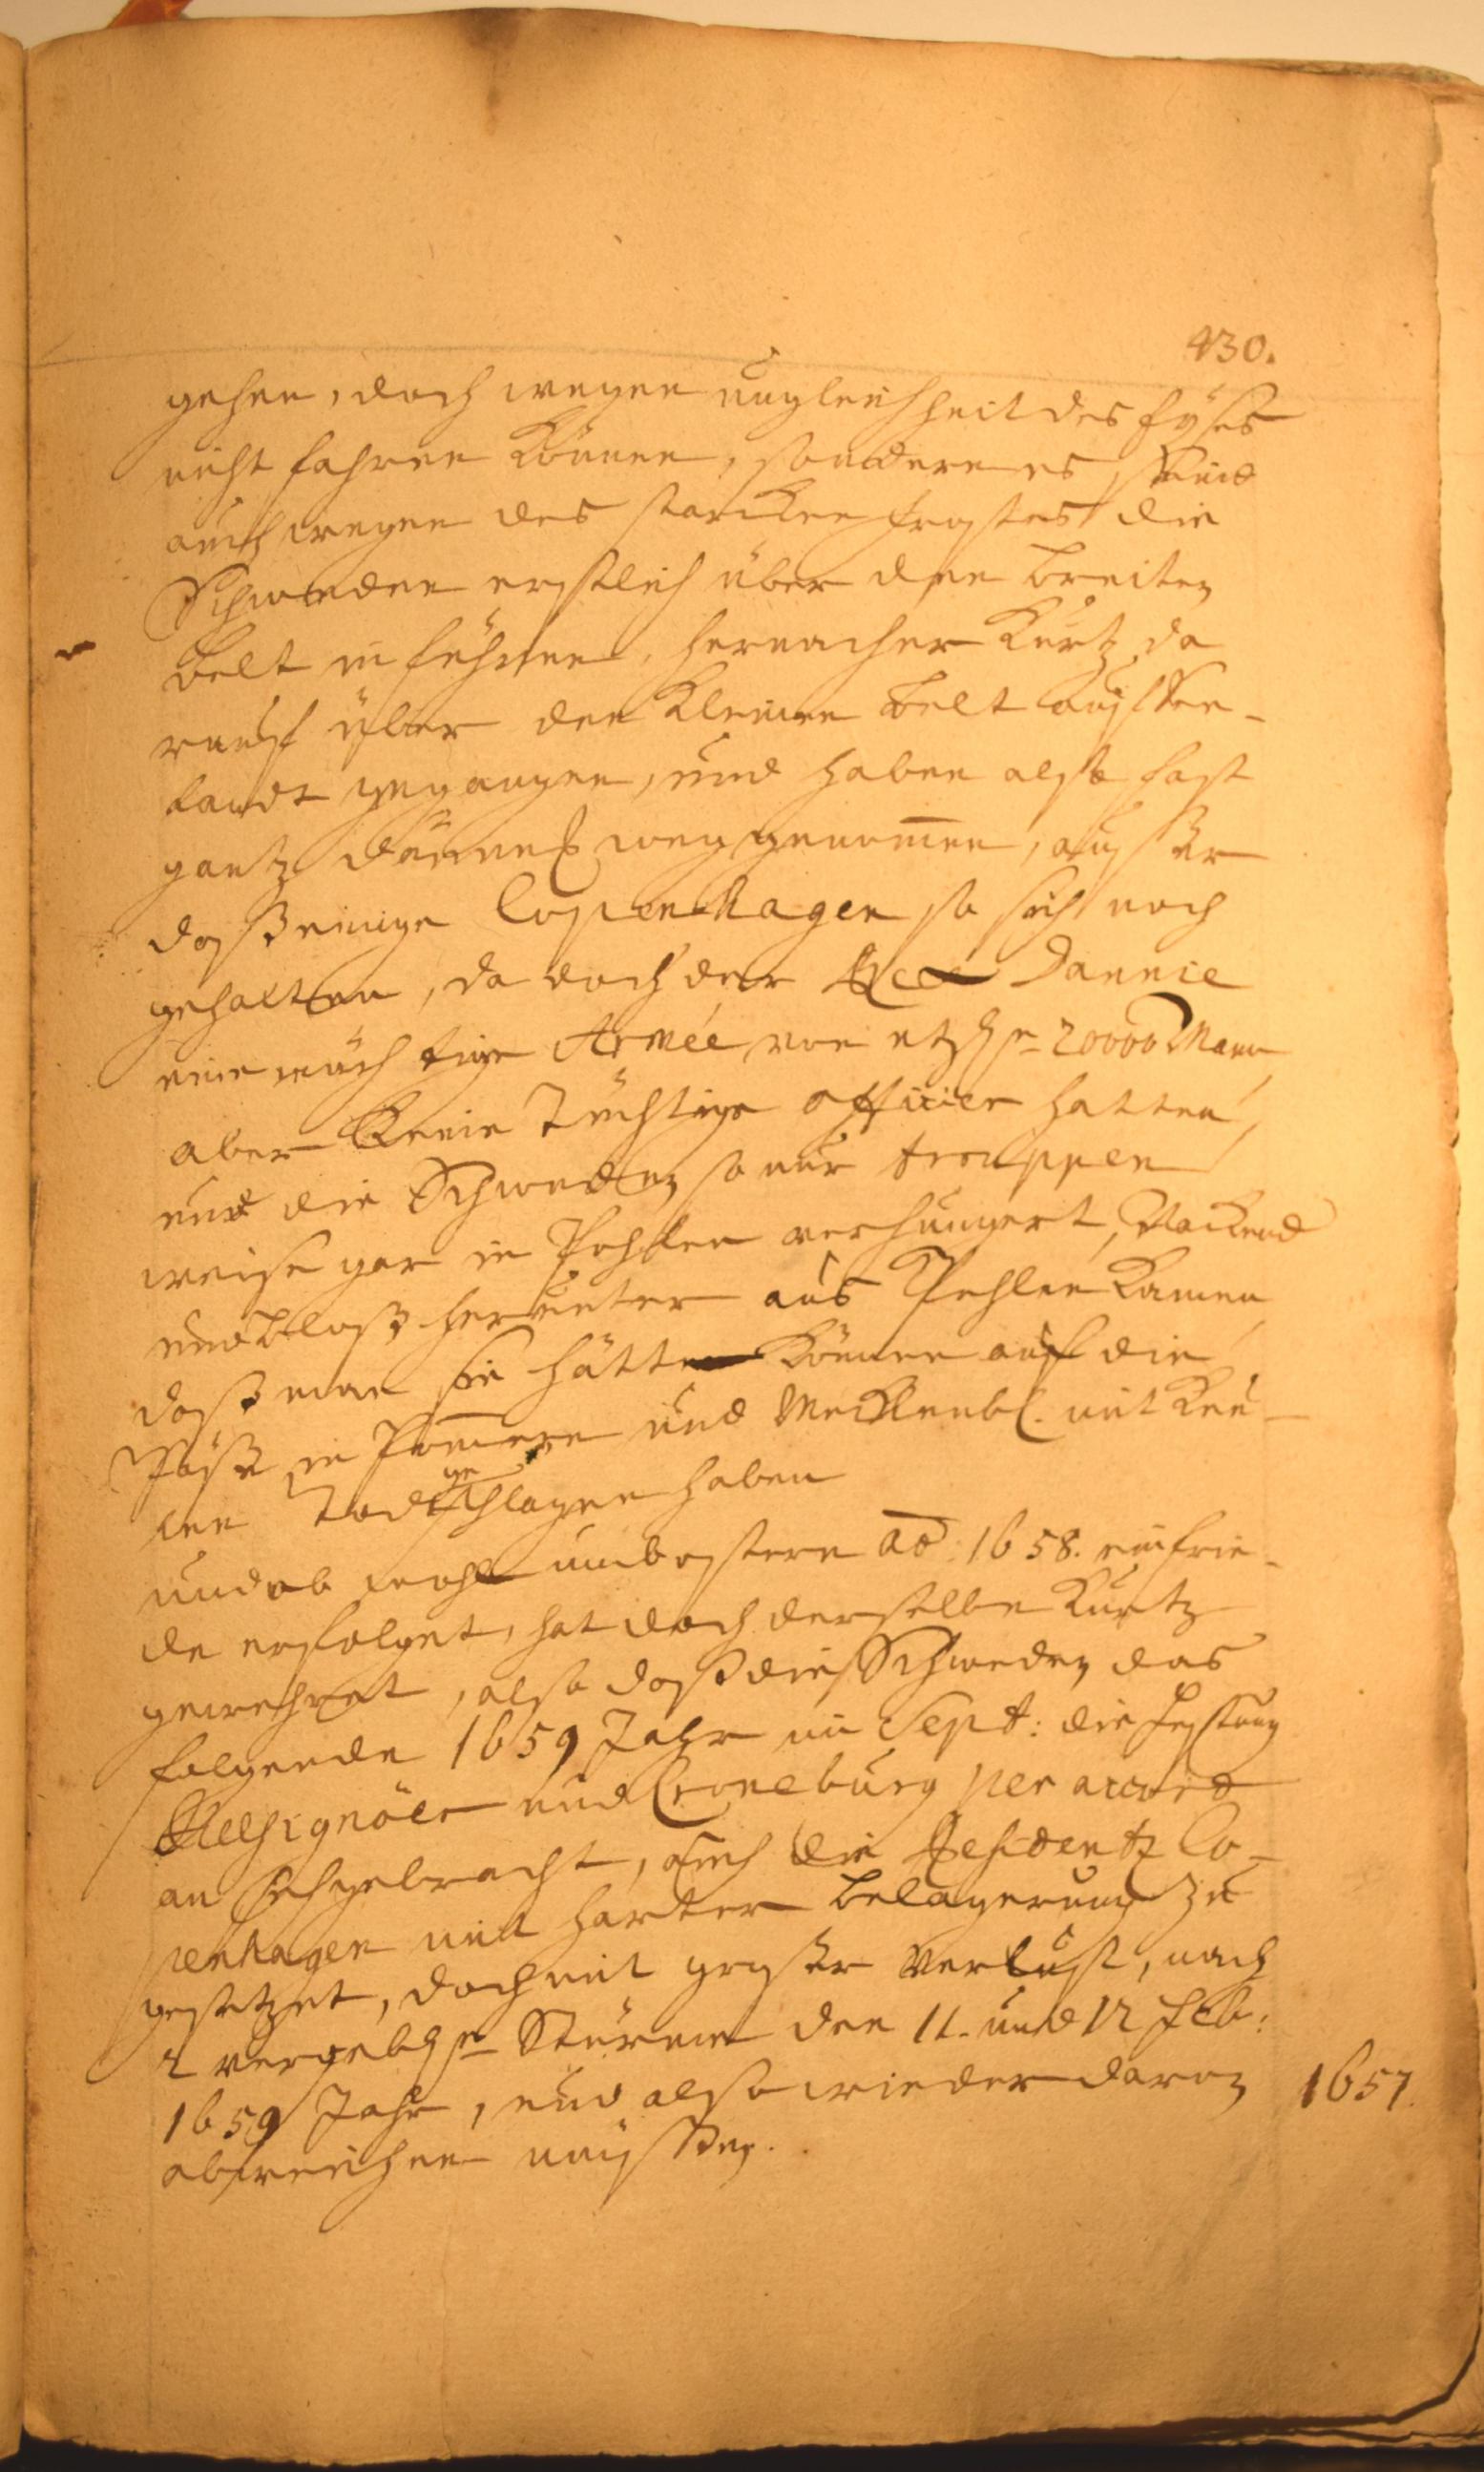 430.
gehen, doch wegen ungleichheit des Eÿses
nicht fahren können, sondern es seind
auch wegen des starcken frostes die
Schweden erstlich über den breiten
belt in führen, hernacher kurtz da
rauff über den kleinen belt auf See-
landt gegangen, und haben also fast
gantz Dännem weggenom̅en, ausser
daß einige Copenhagen so sich noch
gehalten, da doch der Rex Danniæ
eine mächtige Armée von etzl. 20000 Mann
aber keine Tüchtige officier hatten,
und die Schweden so nur trouppen
weise gar in Pohlen verhungert, Nackend
und bloß herunter aus Pohlen kamen,
daß man sie hätte können auf die
Päße in Pom̅ern und Mecklenb. mit Keu-
len Todtgeschlagen haben
und ob wohl umb ostern aō. 1658. ein frie-
de erfolget, hat doch derselbe kurtz
gewehret, also daß die Schweden das
folgende 1659 Jahr im Sept: die festung
Helsignöer und Croneburg per accord
an sich gebracht, auch die Residentz Co-
penhagen mit harter belagerung zu
gesetzet, doch mit grosser verlust, nach
2 vergebl. Stürme den 11. und 12 feb:
1659 Jahr, und also wieder davon
abweichen müssen.
1657.